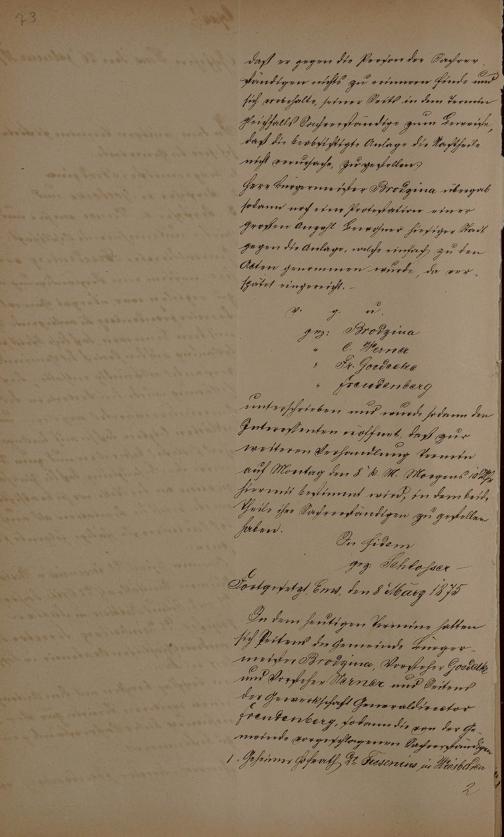 73
daß er gegen die Person der Sachver-
ständigen nichts zu erinnern finde und
sich vorbehalte, seiner Seits in dem Termin
gleichfalls Sachverständige zum Beweise,
daß die beabsichtigte Anlage die Nachtheile
nicht verursache, zu gestellen.
Herr Bürgermeister Brodzina übergab
sodann noch eine Protestation einer
großen Anzahl Bewohner hiesiger Stadt
gegen die Anlage, welche einfach zu den
Akten genommen wurde, da ver-
spätet eingereicht. -
v. g. u.
gez: Brodzina
" C. Werner
" Fr. Goedecke
" Freudenberg
unterschrieben und wurde sodann den
Interessenten eröffnet, daß zur
weiteren Verhandlung Termin
auf Montag den 8 k. M. Morgens
hiermit bestimmt wird, in dem beide
Theile ihre Sachverständigen zu gestellen
haben.
In fidem
gez. Schlosser -
Fortgesetzt Ems, den 8 März 1875
In dem heutigen Termine hatten
sich Seitens der Gemeinde Bürger-
meister Brodzina, Vorsteher Goedecke
und Vorsteher Werner und Seitens
der Gewerkschaft Generaldirector
Freudenberg, sodann die von der Ge-
meinde vorgeschlagenen Sachverständigen
1. Geheimer Hofrath Dr Fresenius, in Wiesbaden
2